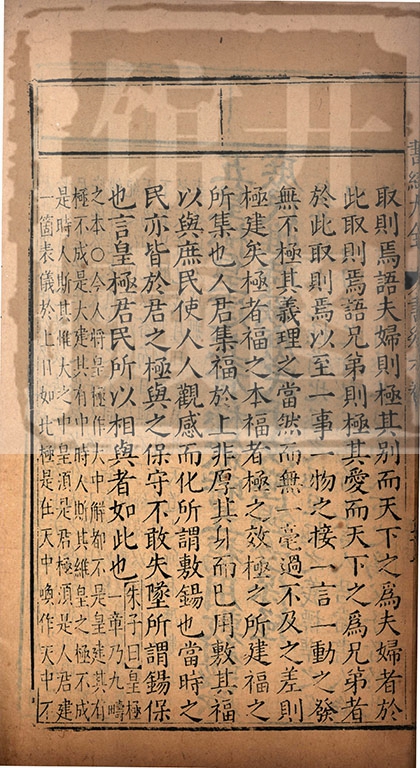 取則焉語夫婦則極其別而天下之爲夫婦者於
此取則焉語兄弟則極其愛而天下之爲兄弟者
於此取則焉以至一事一物之接一言一動之發
無不極其義理之當然而無一毫過不及之差則
極建矣極者福之本福者極之效極之所建福之
所集也人君集福於上非厚其身而已用敷其福
以與庶民使人人觀感而化所謂敷錫也當時之
民亦皆於君之極與之保守不敢失墜所謂錫保
也言皇極君民所以相與者如此也
朱子曰皇極
一章乃九疇
之本○今人將皇極作大中解都不是皇建其有
極不成是大建其有中時人斯其維皇之極不成
是時人斯其惟大之中皇須是君極須是人君建
一箇表儀於上且如北極是在天中喚作天中不